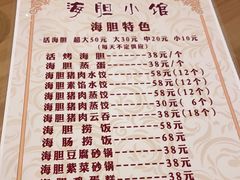 海胆小馆
海胆特色
活海胆 超大50元 大30元 中20元 小10元
(每天不定供应)
活烤海胆——38元/个
海胆蒸蛋——38元/个
海胆猪肉水饺——58元(12个)
海胆素馅水饺——58元(12个)
海胆猪肉馄饨——58元(12个)
海胆猪肉蒸饺——30元(6个)
海胆猪肉云吞——38元(18个)
海胆捞饭——58元
海肠捞饭——68元
海胆豆腐砂锅——38元
海胆紫菜砂锅——38元